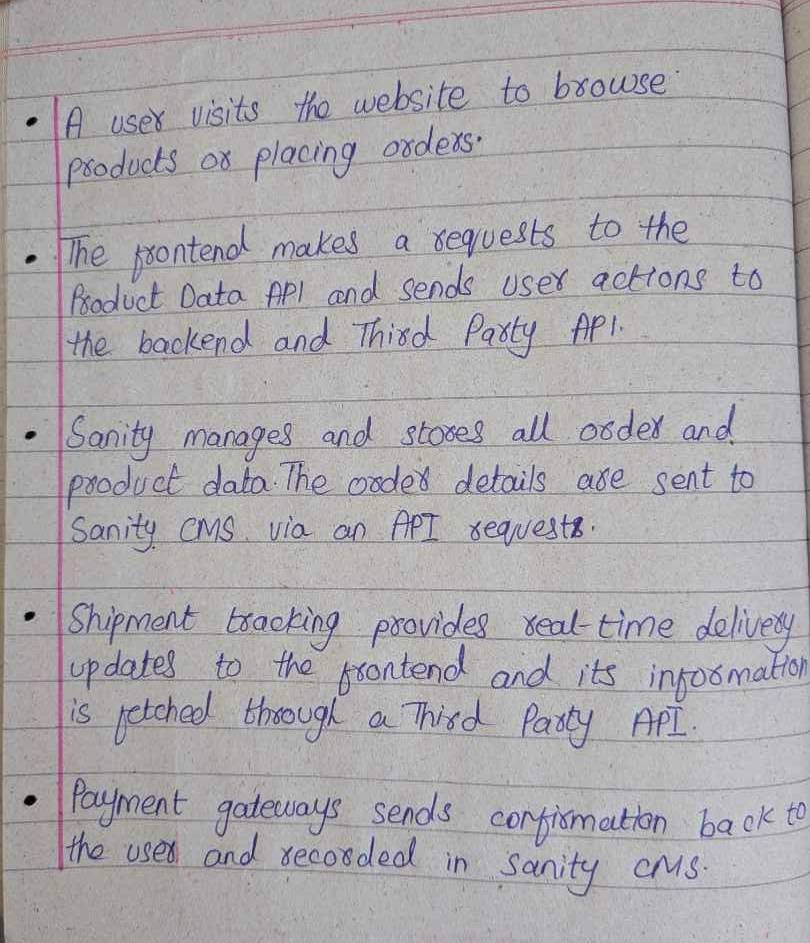 • A user visits the website to browse
products or placing orders.
• The frontend makes a requests to the
Product Data API and sends user actions to
the backend and Third Party API.
• Sanity manages and stores all order and
product data. The order details are sent to
Sanity CMS via an API requests.
• Shipment tracking provides real-time delivery
updates to the frontend and its information
is fetched through a Third Party API.
• Payment gateways sends confirmation back to
the user and recorded in Sanity CMS.